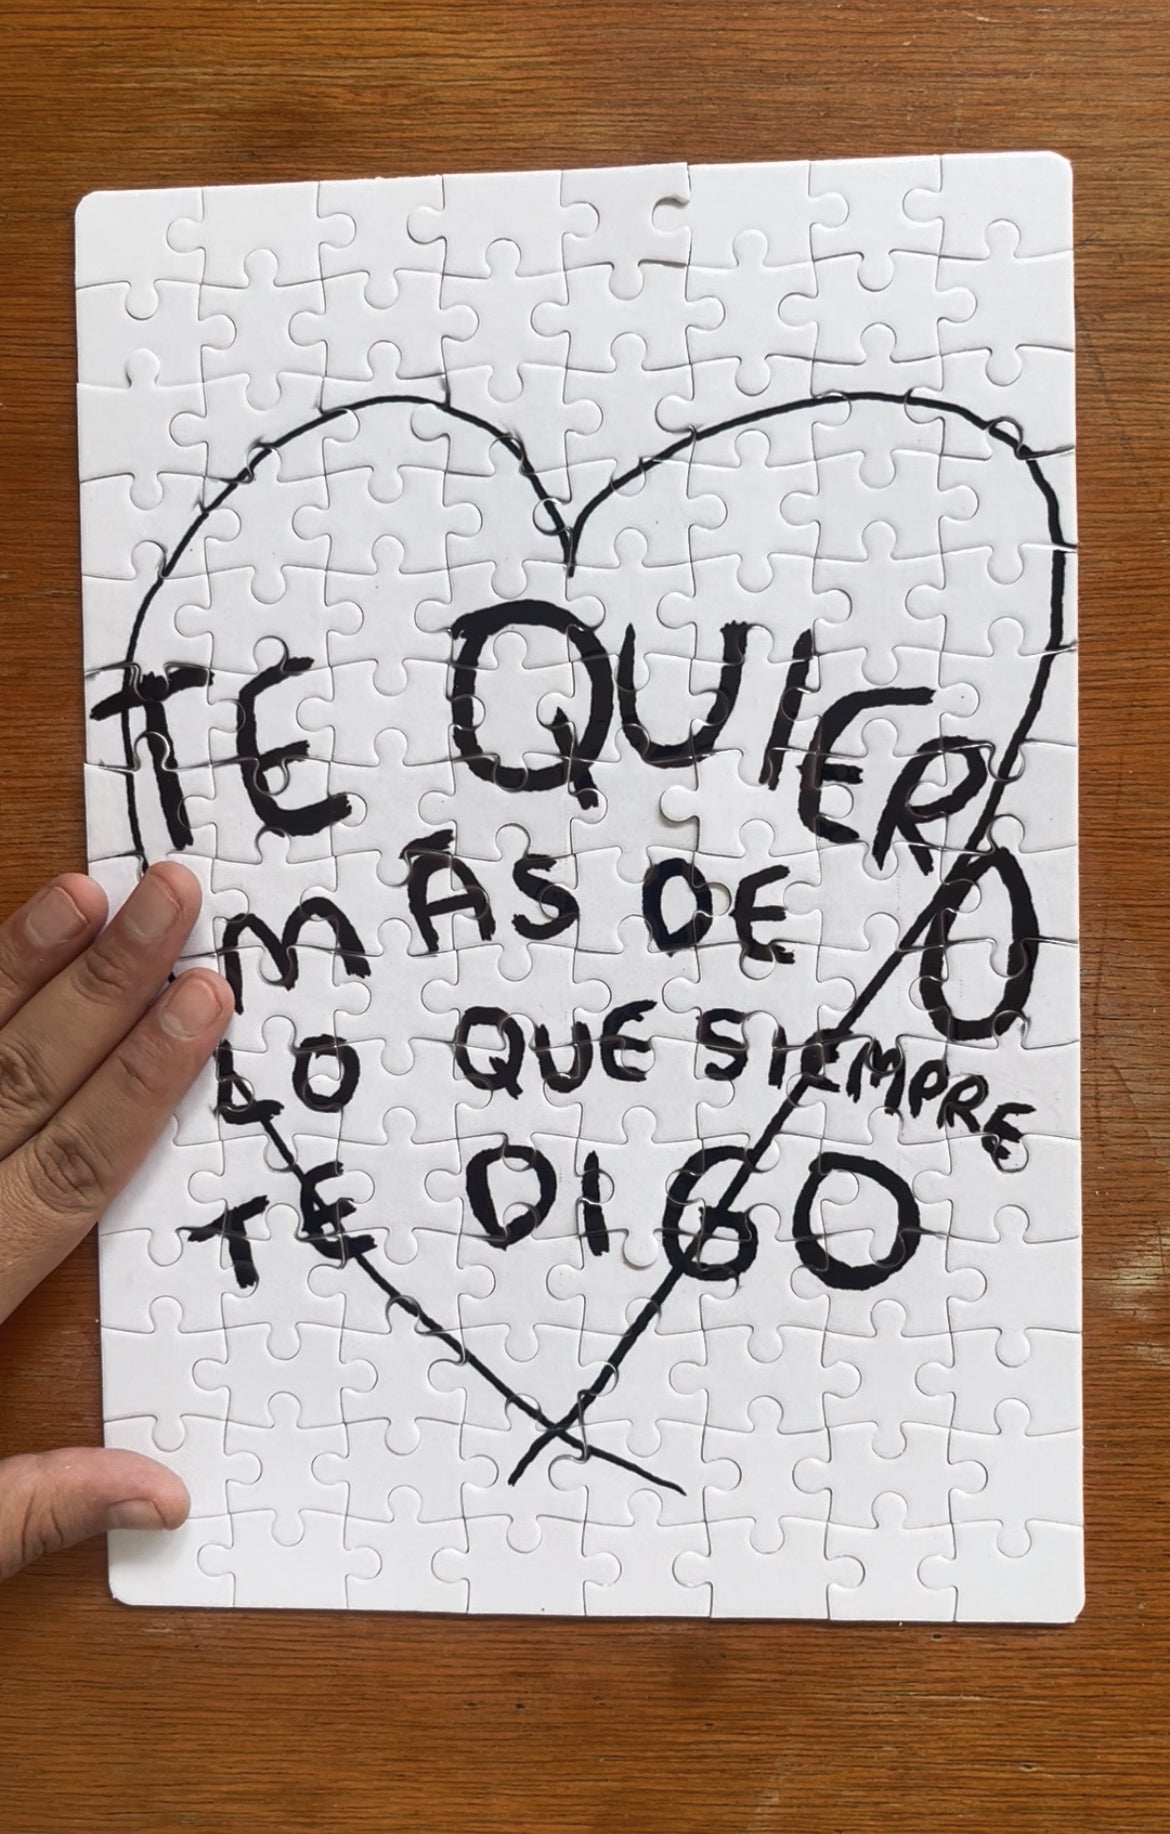 TE QUIERO
MAS DE
LO QUE SIEMPRE
TE DIGO